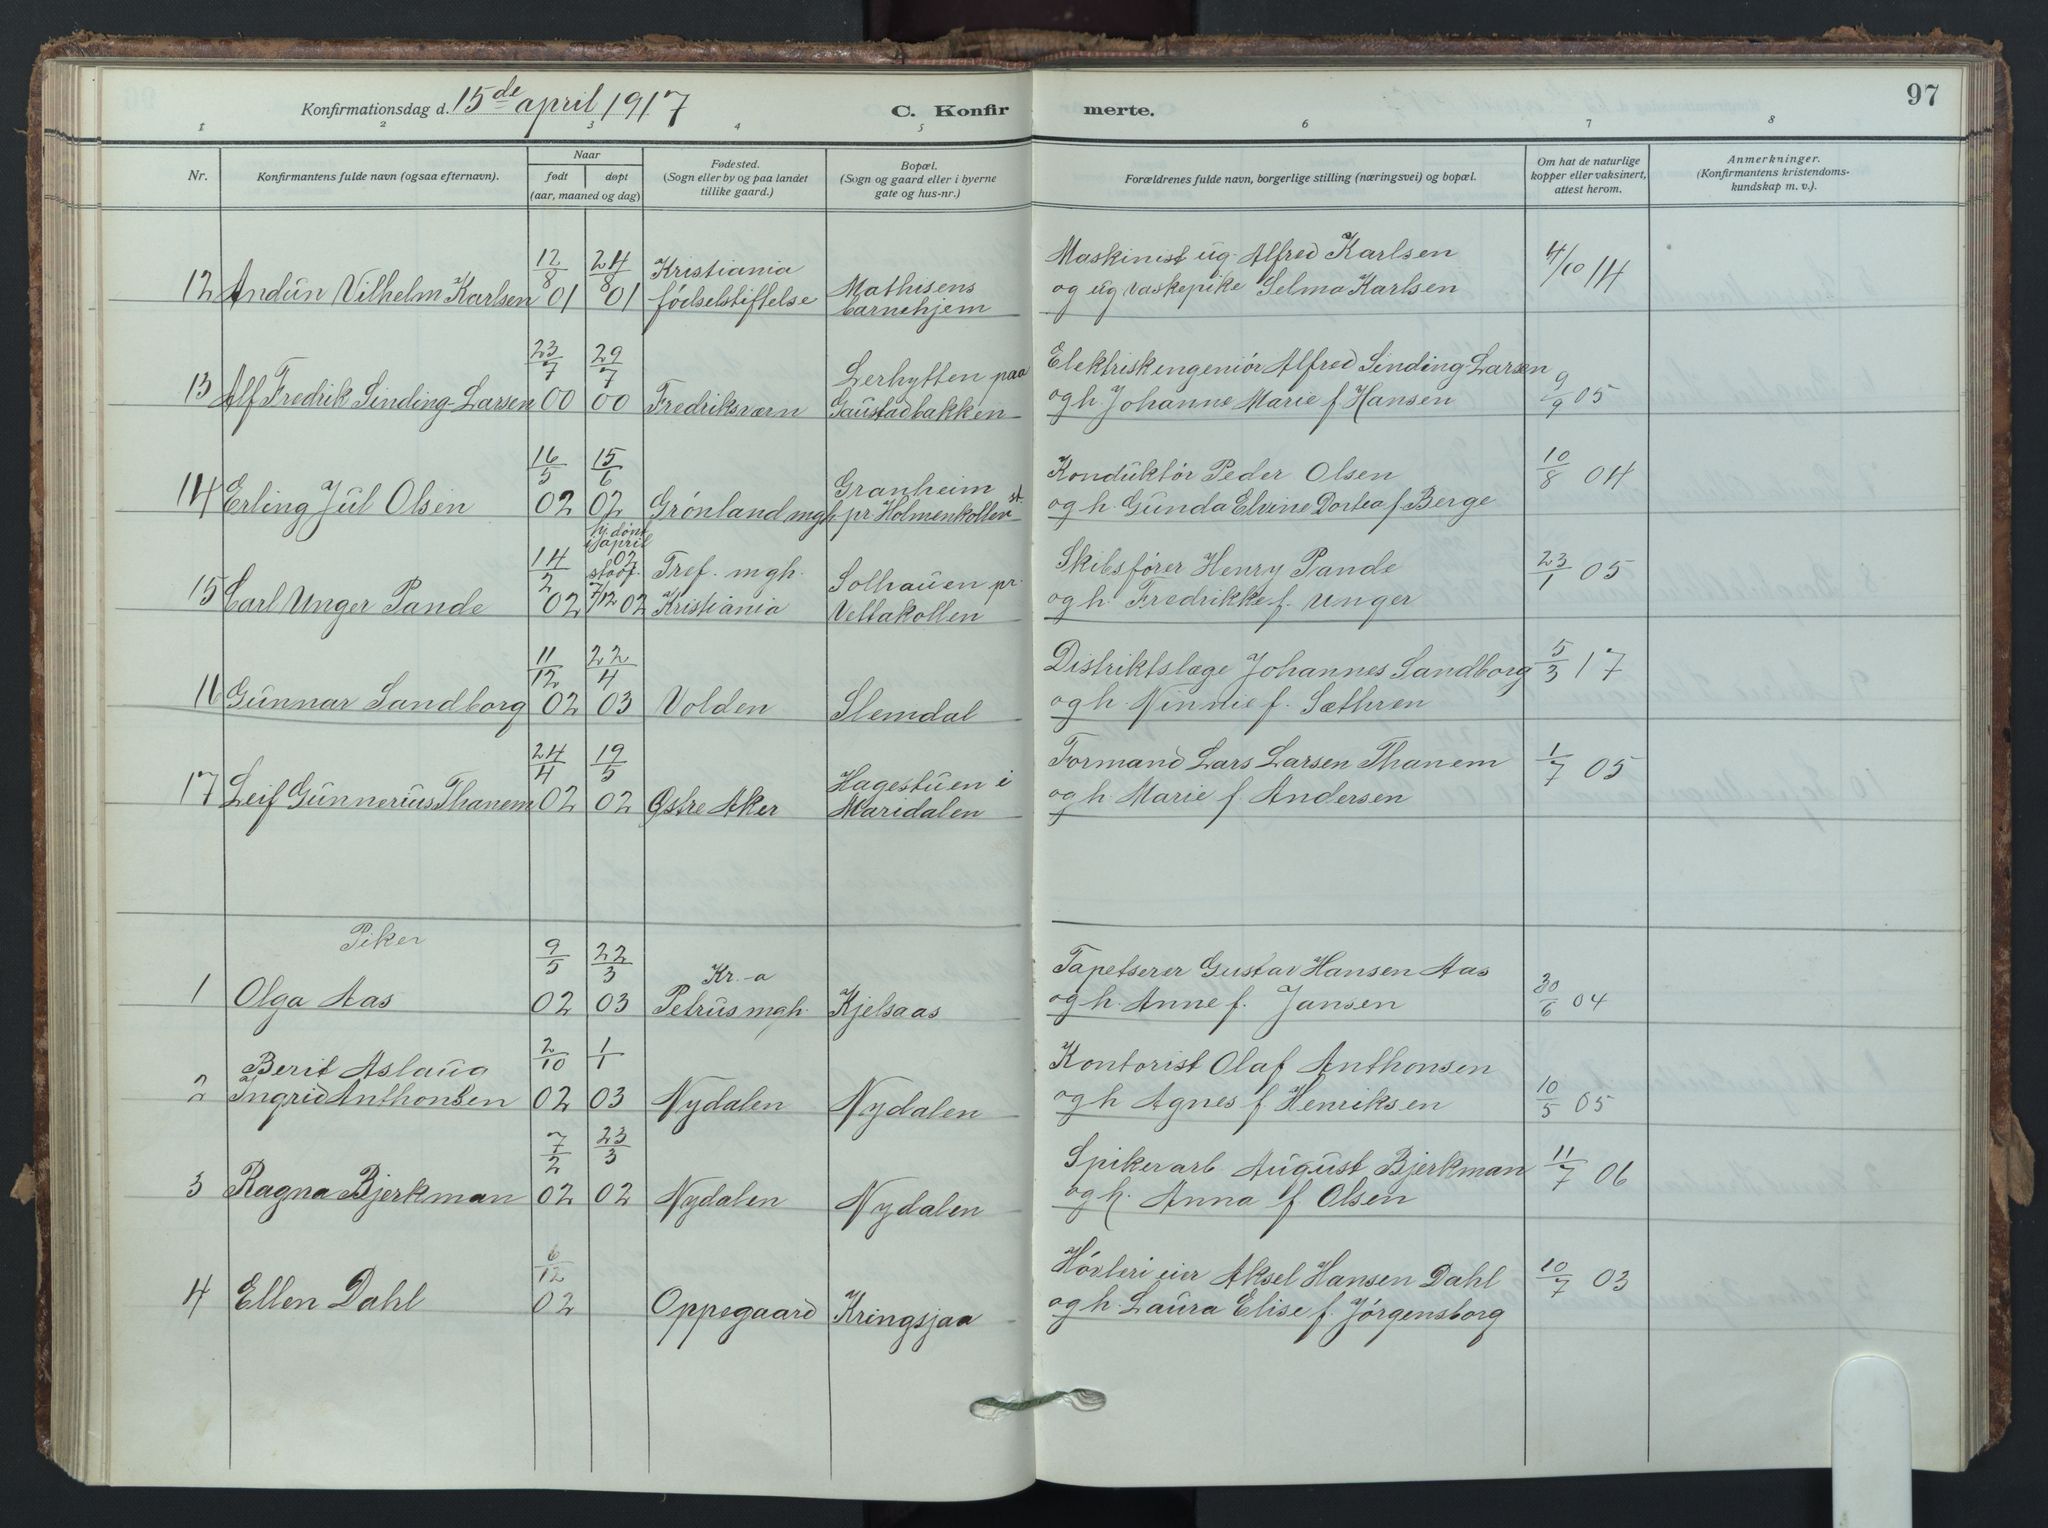 Konfirmationsdag d. 15de april 1917
C. Konfirmerte.
97
1 2 3 4 5 6 7 8
Nr.
Konfirmantens fulde navn (ogsaa efternavn).
Naar
født døpt
(aar, maaned og dag)
Fødested.
(Sogn eller by og paa landet
tillike gaard.)
Bopæl.
(Sogn og gaard eller i byerne
gate og hus-nr.)
Forældrenes fulde navn, borgerlige stilling (næringsvei) og bopæl.
Om hat de naturlige
kopper eller vaksinert,
attest herom.
Anmerkninger.
(Konfirmantens kristendoms-
kundskap m. v.).
12/8 24/8 Kristiania Maskinist ug. Alfred Karlsen 4/10 14
12 Audün Vilhelm Karlsen 01 01 fødselstiftelse Mathisens barnehjem og ug vaskepike Selma Karlsen
23/7 29/7 Lerhytten paa Elektriskengeniør Alfred Sinding-Larsen
13 Alf Fredrik Sinding-Larsen 00 00 Fredriksværn Gaustadbakken og h. Johanne Marie f Hansen 9/9 05
16/5 15/6 Granheim Konduktør Peder Olsen 10/8 04
14 Erling Jul Olsen 02 02 Grønland mgh pr Holmenkollen st. og h. Gunda Elvine Dortea f Berge
14/2 hj. døpt i april 02 Tref. mgh. Solhauen pr. Skibsfører Henry Pande 23/1 05
15 Carl Unger Pande 02 7/12 02 Kristiania Vettakollen og h. Fredrikke f. Unger
11/12 22/4 Distriktslæge Johannes Sandborg 5/3 17
16 Gunnar Sandborg 02 03 Volden Slemdal og h. Ninnie f. Sæthren
24/4 19/5 Hagestuen i Formand Lars Larsen Thanem 1/7 05
17 Leif Gunnerius Thanem 02 02 Østre Aker Maridalen og h. Marie f Andersen
Piker
9/5 22/3 Kr.-a Tapetserer Gustav Hansen Aas
1 Olga Aas 02 03 Petrus mgh. Kjelsaas og h. Anne f. Jansen 30/6 04
Berit Aslaug 2/10 1/1 Kontorist Olaf Anthonsen
2 Ingrid Anthonsen 02 03 Nydalen Nydalen og h Agnes f. Henriksen 10/5 05
7/2 23/3 Spikerarb. August Bjerkman 11/7 06
3 Ragna Bjerkman 02 02 Nydalen Nydalen og h. Anna f Olsen
6/12 Høvleri eier Aksel Hansen Dahl 10/7 03
4 Ellen Dahl 02 Oppegaard Kringsjaa og h. Laura Elise f. Jørgensborg